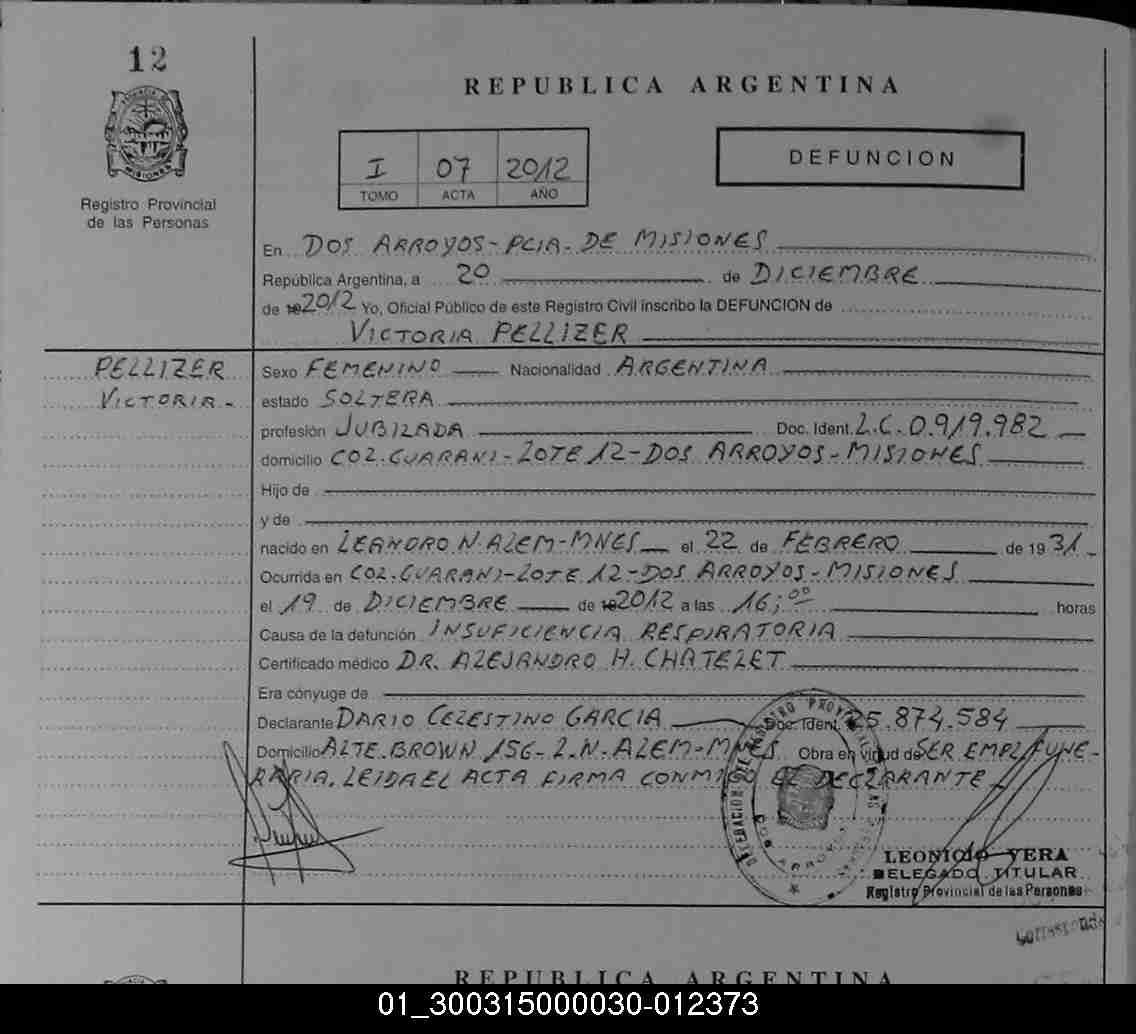 12
REPUBLICA ARGENTINA
I 07 2012
TOMO ACTA AÑO
DEFUNCION
MISIONES
Registro Provincial
de las Personas
En DOS ARROYOS - PCIA. DE MISIONES
República Argentina, a 20 de DICIEMBRE
de 2012 Yo, Oficial Público de este Registro Civil inscribo la DEFUNCION de
VICTORIA PELLIZER
PELLIZER
VICTORIA.-
Sexo FEMENINO Nacionalidad ARGENTINA
estado SOLTERA
profesión JUBILADA Doc. Ident. L.C. 0.919.982
domicilio COL. GUARANI - LOTE 12 - DOS ARROYOS - MISIONES
Hijo de
y de
nacido en LEANDRO N. ALEM - MNES el 22 de FEBRERO de 1931
Ocurrida en COL. GUARANI - LOTE 12 - DOS ARROYOS - MISIONES
el 19 de DICIEMBRE de 2012 a las 16;00 horas
Causa de la defunción INSUFICIENCIA RESPIRATORIA
Certificado médico DR. ALEJANDRO H. CHATELET
Era cónyuge de
Declarante DARIO CELESTINO GARCIA Doc. Ident. 25.874.584
Domicilio ALTE. BROWN 156 - L.N. ALEM - MNES Obra en virtud de SER EMPL. FUNE-
RARIA. LEIDA EL ACTA FIRMA CONMIGO EL DECLARANTE
LEONICIO VERA
DELEGADO TITULAR
Registro Provincial de las Personas
REPUBLICA ARGENTINA
01_300315000030-012373